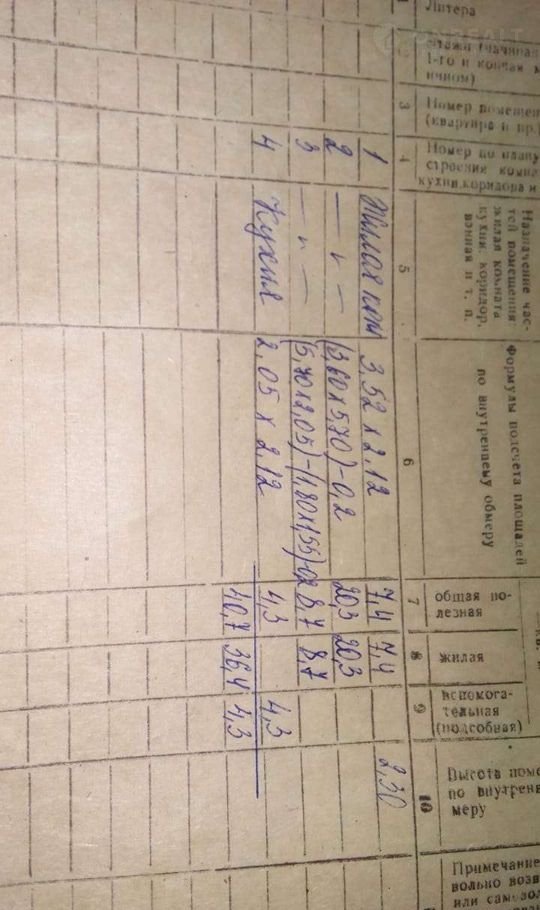 Литера
1-го и кончая
Номер помещен
(квартира и пр.)
Номер по плану
строения комна
кухни, коридора и
Назначение час-
тей помещения
жилая комната
кухни, коридор,
ванная и т. п.
Формулы подсчета площадей
по внутреннему обмеру
общая по-
лезная
жилая
вспомога-
тельная
(подсобная)
Высота поме
по внутрен
меру
Примечание
вольно возв
или самовол
3 4 5 6 7 8 9 10
1 Жилая ком 3,52 х 2,12 7,4 7,4 2,30
2 — " — (3,60 х 5,70) - 0,2 20,3 20,3
3 — " — (5,70 х 2,05) - (1,80 х 1,55) - 0,2 8,7 8,7
4 Кухня 2,05 х 2,12 4,3 4,3
40,7 36,4 4,3